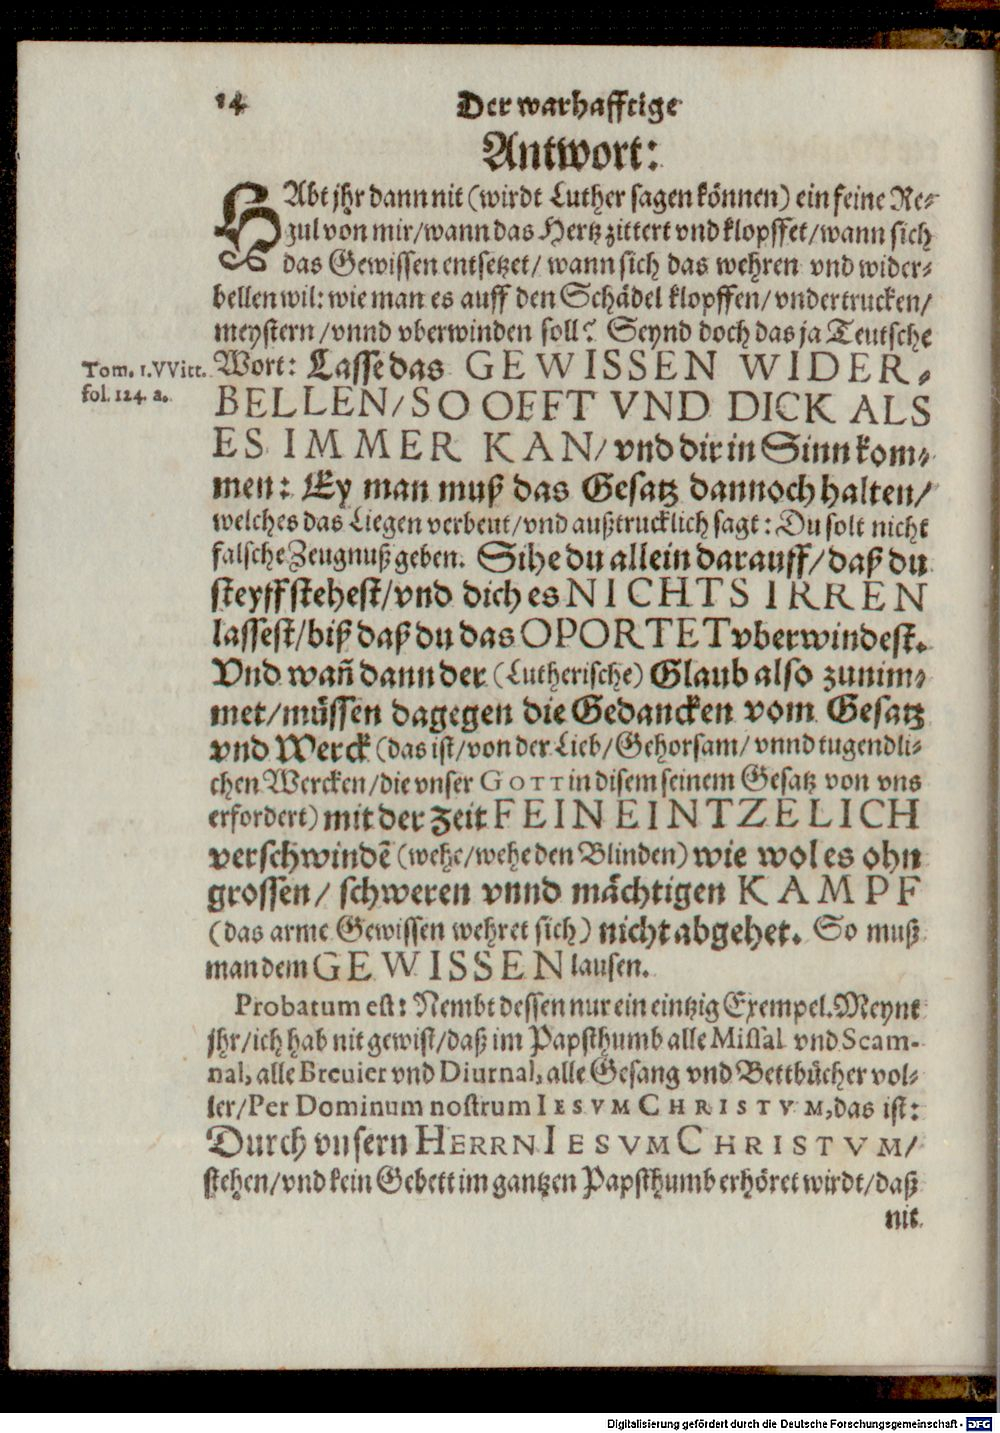 14 Der warhafftige
Antwort:
HAbt jhr dann nit (wirdt Luther sagen können) ein feine Re-
gul von mir/wann das Hertz zittert vnd klopffet/wann sich
das Gewissen entsetzet/ wann sich das wehren vnd wider-
bellen wil: wie man es auff den Schädel klopffen/vndertrucken/
meystern/vnnd vberwinden soll? Seynd doch das ja Teutsche
Tom. 1. VVitt.
fol. 124. a.
Wort: Lasse das GEWISSEN WIDER-
BELLEN/SO OFFT VND DICK ALS
ES IMMER KAN/vnd dir in Sinn kom-
men: Ey man muß das Gesatz dannoch halten/
welches das Liegen verbeut/vnd außtrucklich sagt: Du solt nicht
falsche Zeugnuß geben. Sihe du allein darauff/daß du
steyff stehest/vnd dich es NICHTS IRREN
lassest/biß daß du das OPORTET vberwindest.
Vnd wañ dann der (Lutherische) Glaub also zunim-
met/müssen dagegen die Gedancken vom Gesatz
vnd Werck (das ist/von der Lieb/Gehorsam/vnnd tugendli-
chen Wercken/die vnser GOTT in disem seinem Gesatz von vns
erfordert) mit der Zeit FEIN EINTZELICH
verschwindẽ (wehe/wehe den Blinden) wie wol es ohn
grossen/ schweren vnnd mächtigen KAMPF
(das arme Gewissen wehret sich) nicht abgehet. So muß
man dem GEWISSEN lausen.
Probatum est: Nembt dessen nur ein eintzig Exempel. Meynt
jhr/ich hab nit gewist/daß im Papsthumb alle Missal vnd Scam-
nal, alle Breuier vnd Diurnal, alle Gesang vnd Bettbücher vol-
ler/Per Dominum nostrum IESVM CHRISTVM, das ist:
Durch vnsern HERRN IESVM CHRISTVM/
stehen/vnd kein Gebett im gantzen Papsthumb erhöret wirdt/daß
nit
Digitalisierung gefördert durch die Deutsche Forschungsgemeinschaft - DFG